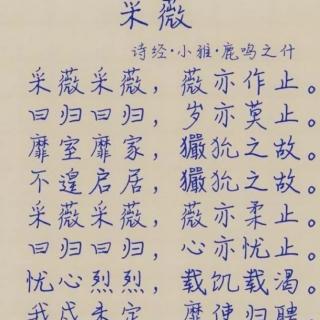 采薇
诗经·小雅·鹿鸣之什
采薇采薇，薇亦作止。
曰归曰归，岁亦莫止。
靡室靡家，玁狁之故。
不遑启居，玁狁之故。
采薇采薇，薇亦柔止。
曰归曰归，心亦忧止。
忧心烈烈，载饥载渴。
我戍未定，靡使归聘